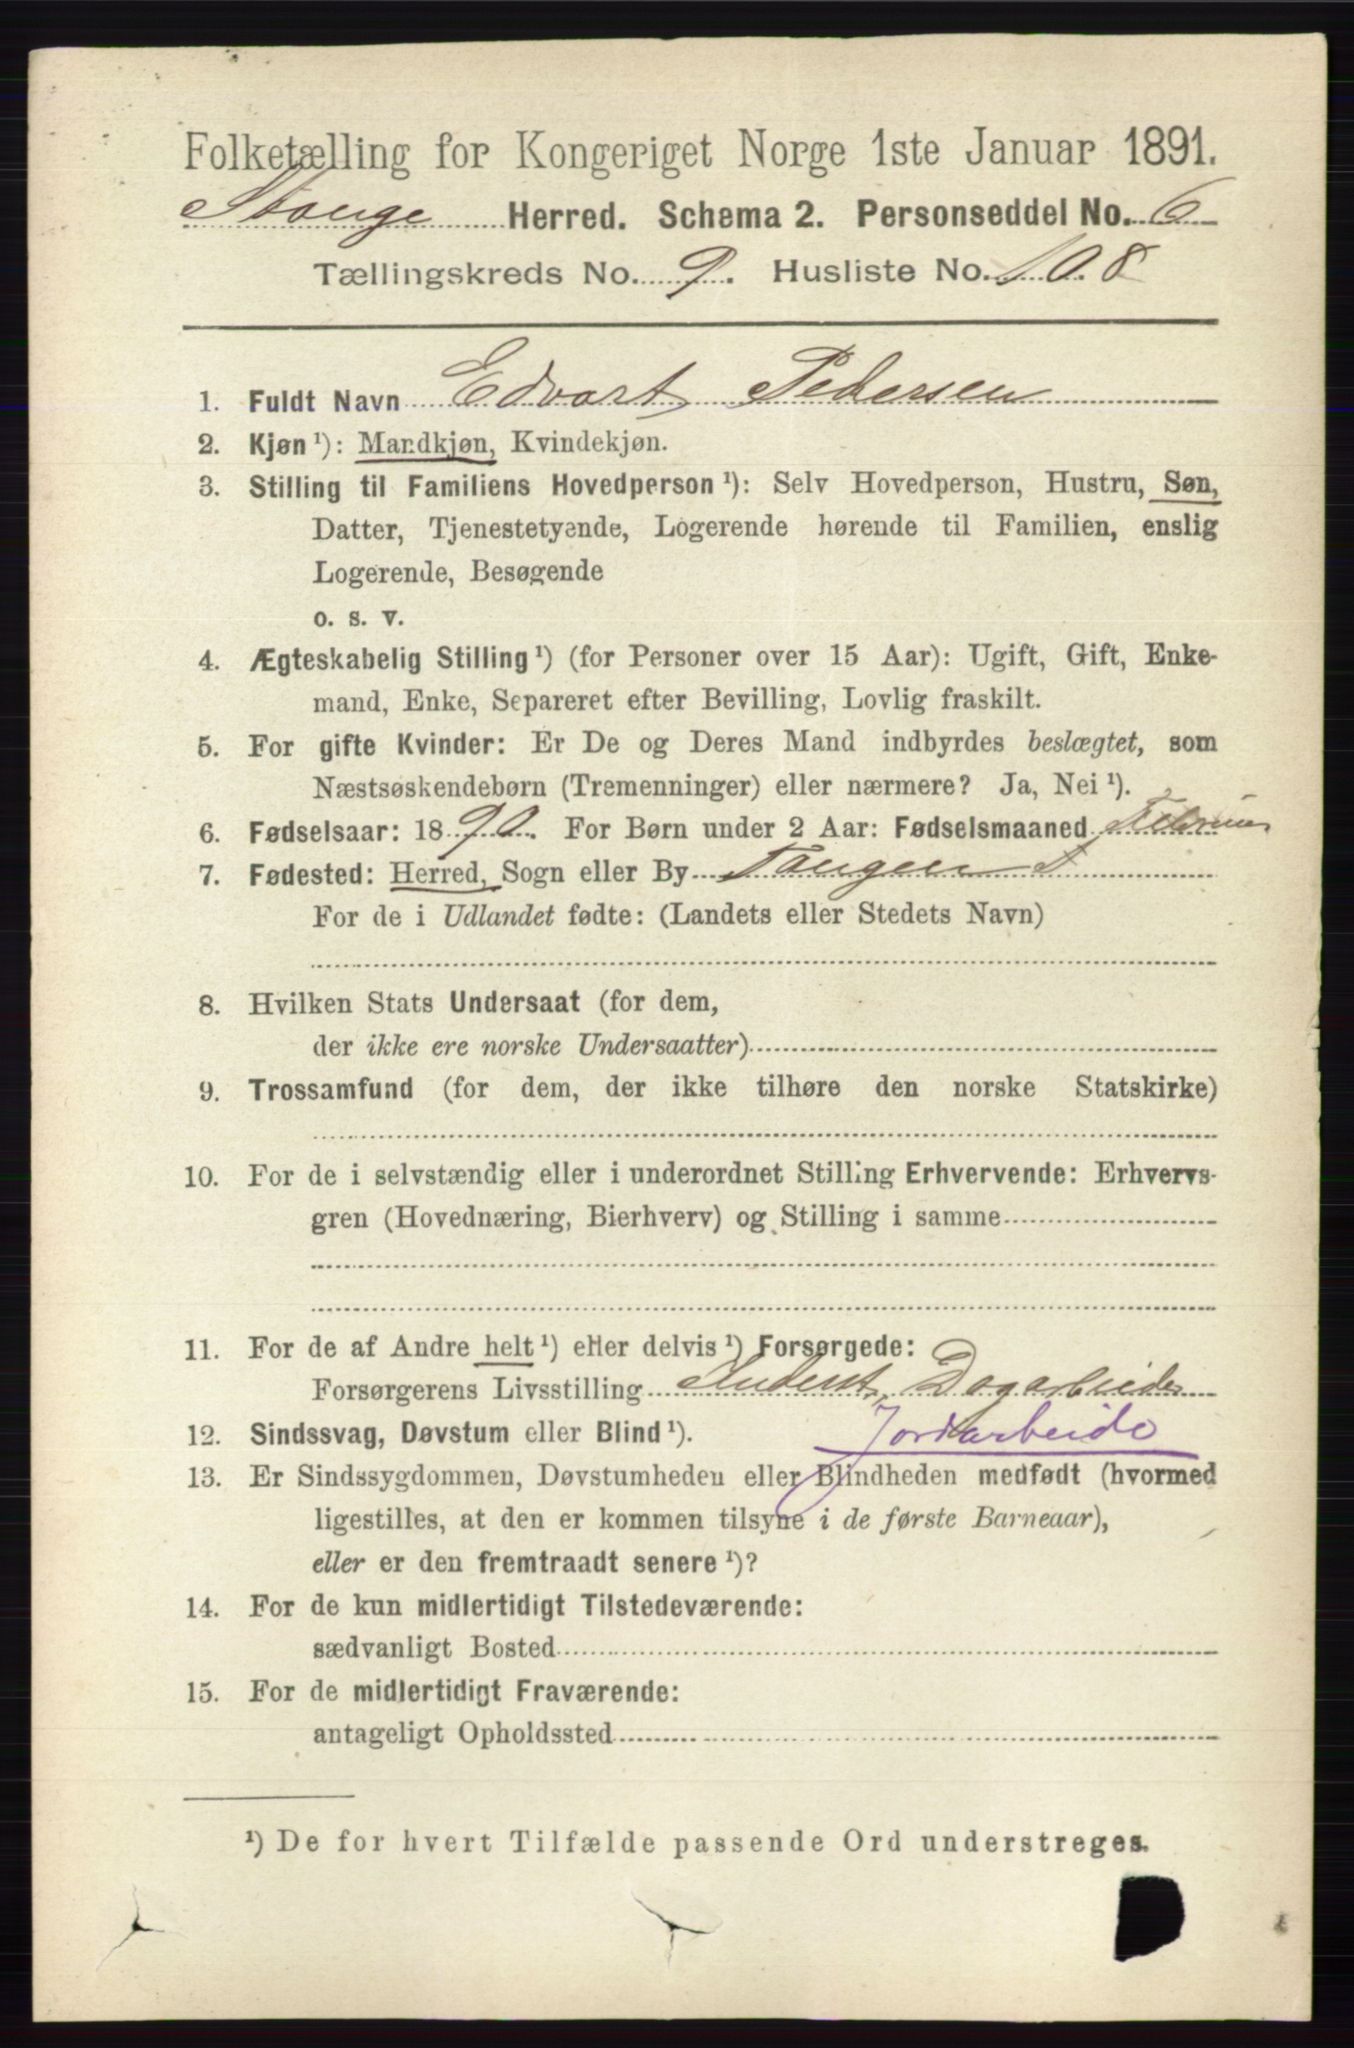 Folketælling for Kongeriget Norge 1ste Januar 1891.
Stange Herred. Schema 2. Personseddel No. 6
Tællingskreds No. 9. Husliste No. 108
1. Fuldt Navn Edvart Pedersen
2. Kjøn ¹): Mandkjøn, Kvindekjøn.
3. Stilling til Familiens Hovedperson ¹): Selv Hovedperson, Hustru, Søn,
Datter, Tjenestetyende, Logerende hørende til Familien, enslig
Logerende, Besøgende
o. s. v.
4. Ægteskabelig Stilling ¹) (for Personer over 15 Aar): Ugift, Gift, Enke-
mand, Enke, Separeret efter Bevilling, Lovlig fraskilt.
5. For gifte Kvinder: Er De og Deres Mand indbyrdes beslægtet, som
Næstsøskendebørn (Tremenninger) eller nærmere? Ja, Nei ¹).
6. Fødselsaar: 1890. For Børn under 2 Aar: Fødselsmaaned Februar
7. Fødested: Herred, Sogn eller By Tangen
For de i Udlandet fødte: (Landets eller Stedets Navn)
8. Hvilken Stats Undersaat (for dem,
der ikke ere norske Undersaatter)
9. Trossamfund (for dem, der ikke tilhøre den norske Statskirke)
10. For de i selvstændig eller i underordnet Stilling Erhvervende: Erhvervs-
gren (Hovednæring, Bierhverv) og Stilling i samme
11. For de af Andre helt ¹) eller delvis ¹) Forsørgede:
Forsørgerens Livsstilling Inderst, Dagarbeider
12. Sindssvag, Døvstum eller Blind ¹). Jordarbeide
13. Er Sindssygdommen, Døvstumheden eller Blindheden medfødt (hvormed
ligestilles, at den er kommen tilsyne i de første Barneaar),
eller er den fremtraadt senere ¹)?
14. For de kun midlertidigt Tilstedeværende:
sædvanligt Bosted
15. For de midlertidigt Fraværende:
antageligt Opholdssted
¹) De for hvert Tilfælde passende Ord understreges.